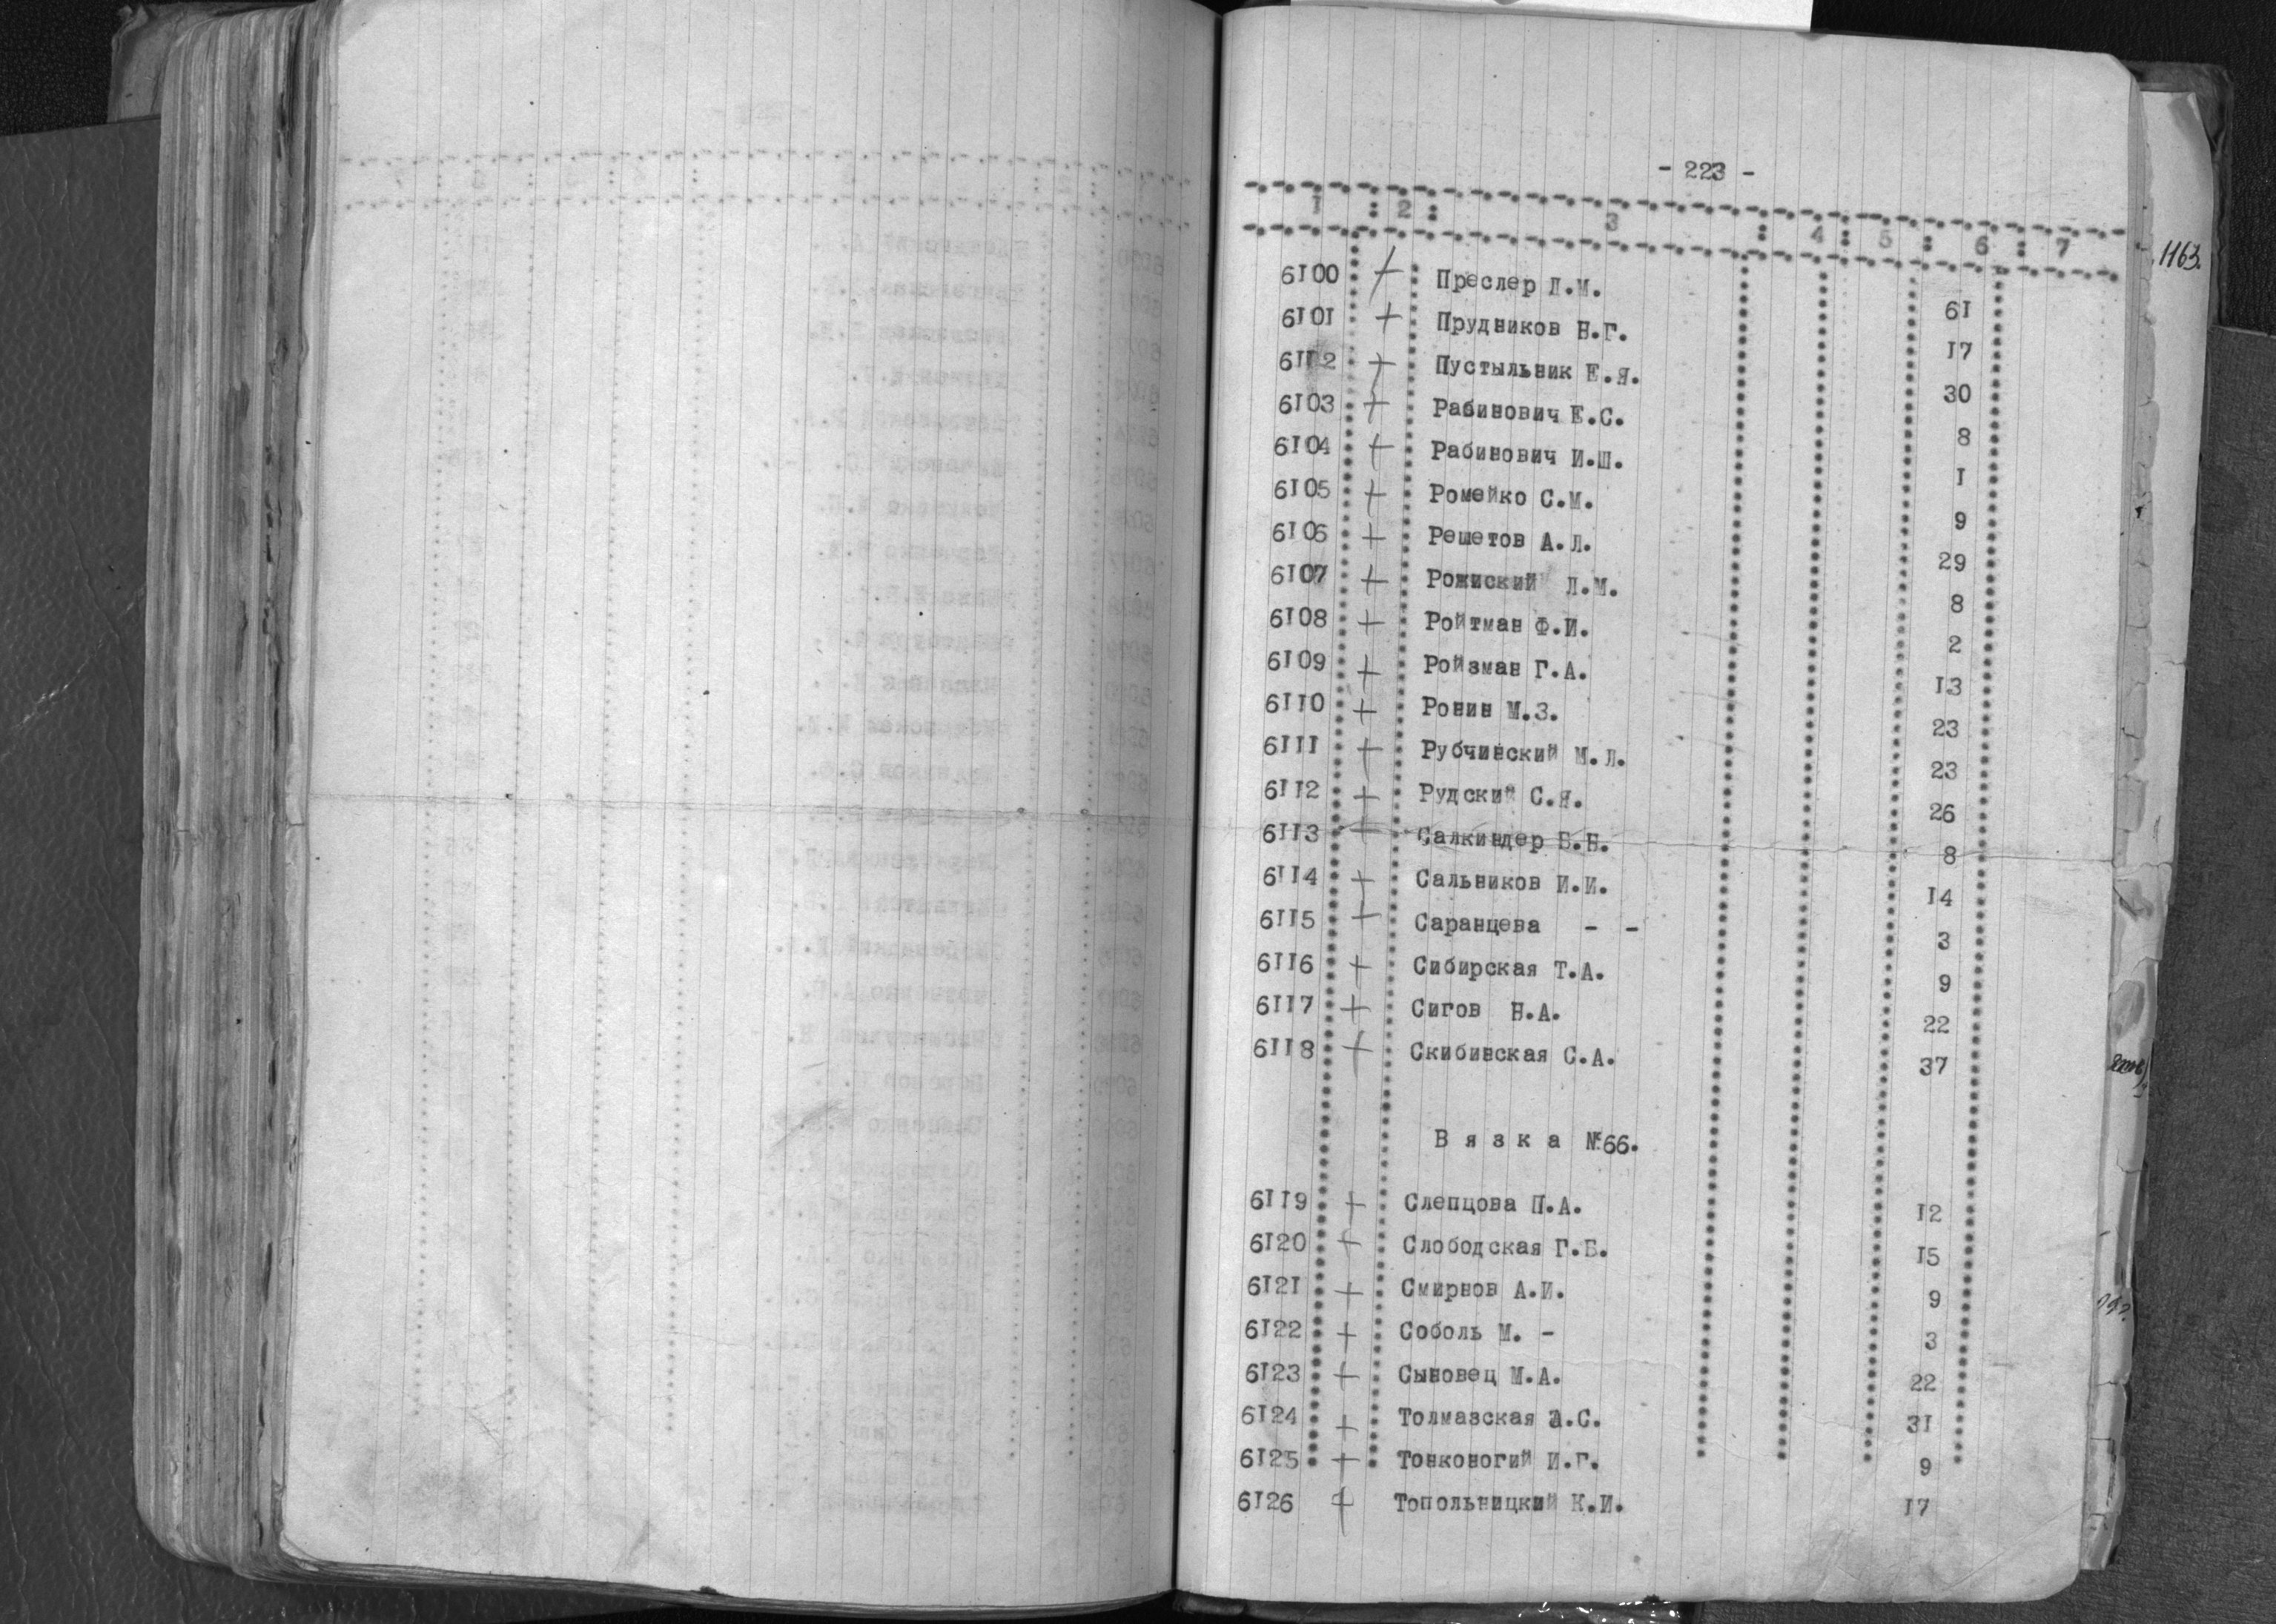 - 223 -
1 : 2 : 3 : 4 : 5 : 6 : 7
1163.
6100 + Преслер Л.М. 61
6101 + Прудников Н.Г. 17
6102 + Пустыльник Е.Я. 30
6103 + Рабинович Е.С. 8
6104 + Рабинович И.Ш. 1
6105 + Ромейко С.М. 9
6106 + Решетов А.Л. 29
6107 + Рожиский Л.М. 8
6108 + Ройтман Ф.И. 2
6109 + Ройзман Г.А. 13
6110 + Ронин М.З. 23
6111 + Рубчинский М.Л. 23
6112 + Рудский С.Я. 26
6113 + Салкиндер Б.Н. 8
6114 + Сальников И.И. 14
6115 + Саранцева - - 3
6116 + Сибирская Т.А. 9
6117 + Сигов Н.А. 22
6118 + Скибинская С.А. 37
Вязка №66.
6119 + Слепцова П.А. 12
6120 + Слободская Г.Б. 15
6121 + Смирнов А.И. 9
6122 + Соболь М. - 3
6123 + Сыновец М.А. 22
6124 + Толмазская А.С. 31
6125 + Тонконогий И.Г. 9
6126 + Топольницкий К.И. 17